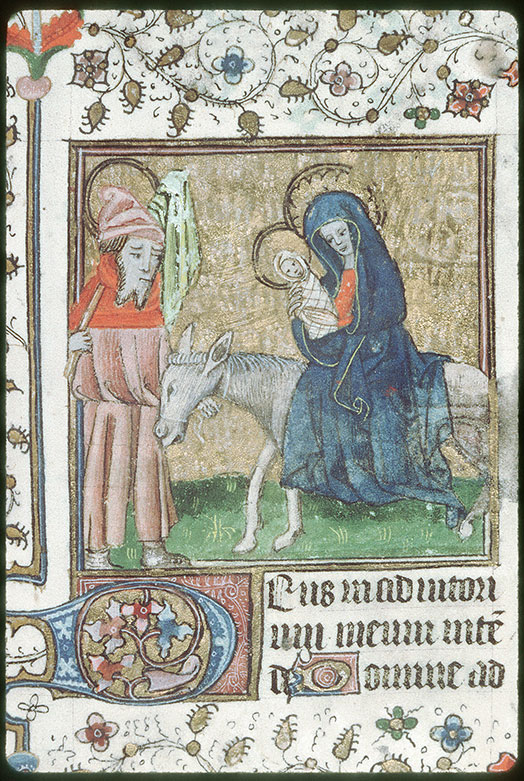 Deus in adiutori
um meum intē
de Domine ad